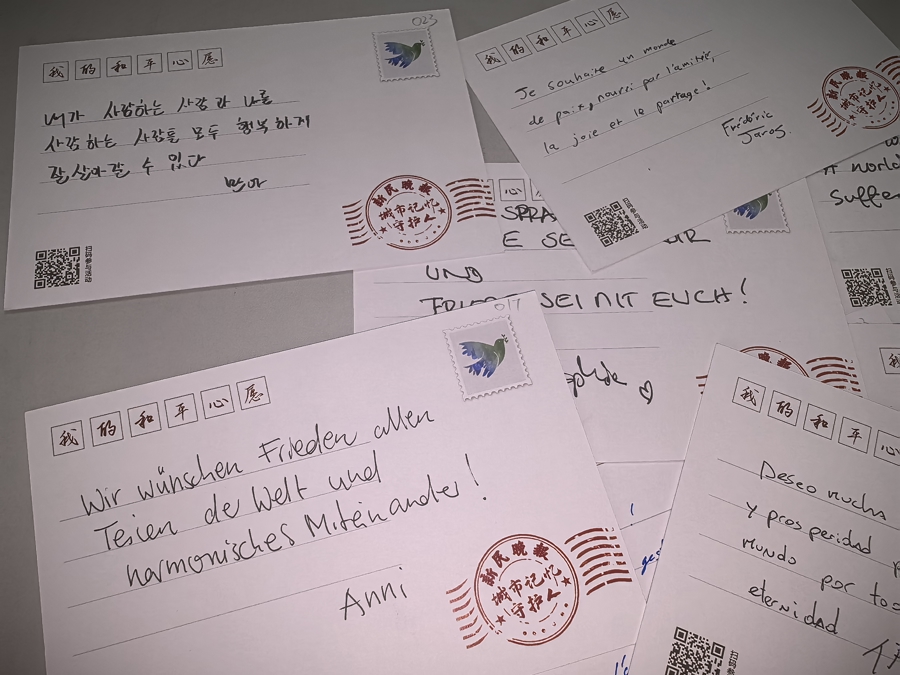 023
我的和平心愿
내가 사랑하는 사람과 나를
사랑하는 사람들 모두 행복하게
잘 살아갈 수 있다
新民晚报
城市记忆
守护人
扫码参与活动
我的和平心愿
Je souhaite un monde
de paix, nourri par l'amitié,
la joie et le partage!
Frédéric
Jaros.
新民晚报
城市记忆
守护人
心愿
UND
SEI MIT EUCH!
world
017
我的和平心愿
Wir wünschen Frieden allen
Teilen de Welt und
harmonisches Miteinander!
Anni
新民晚报
城市记忆
守护人
我的和平心
Deseo mucha
y prosperidad
mundo por
eternidad